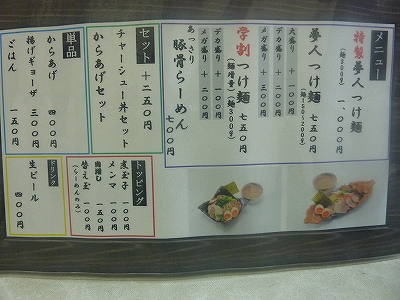 メニュー
特製夢人つけ麺
(麺300g) 一、〇〇〇円
夢人つけ麺
(麺150~200g) 七五〇円
大盛り + 一〇〇円
デカ盛り + 二〇〇円
メガ盛り + 三〇〇円
学割つけ麺
(麺増量)(麺300g) 七五〇円
デカ盛り + 一〇〇円
メガ盛り + 二〇〇円
あっさり
豚骨らーめん
七〇〇円
セット
+ 二五〇円
チャーシュー丼セット
からあげセット
単品
からあげ 四〇〇円
揚げギョーザ 三〇〇円
ごはん 一五〇円
トッピング
煮玉子 一〇〇円
メンマ 一〇〇円
肉増し 一五〇円
替え玉 一〇〇円
(らーめんのみ)
ドリンク
生ビール 四〇〇円